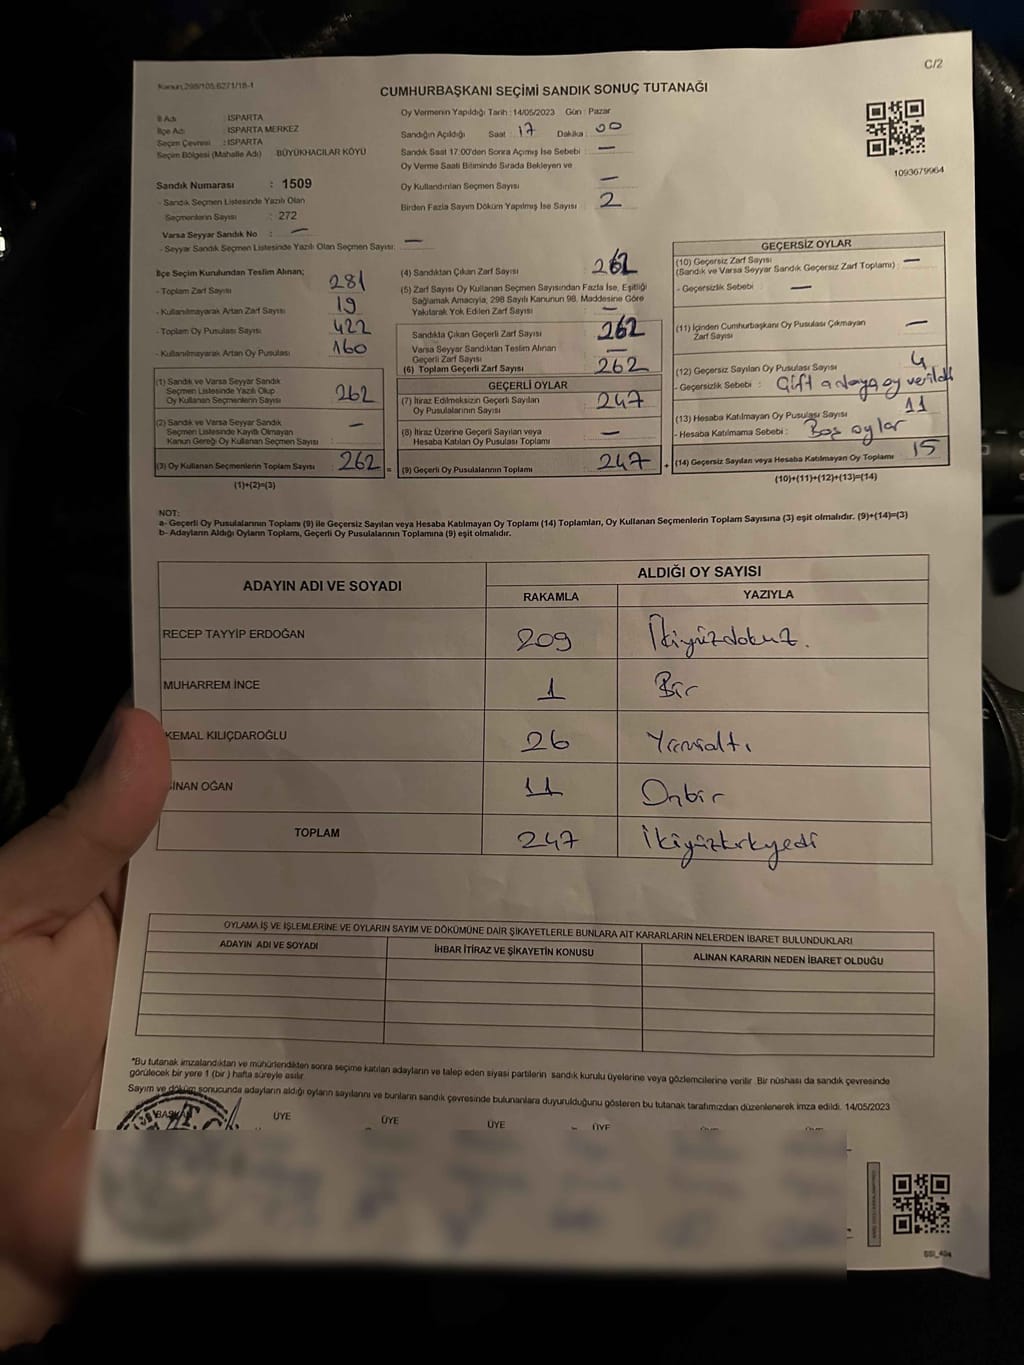 C/2
Kanun:298/105,6271/18-1
CUMHURBAŞKANI SEÇİMİ SANDIK SONUÇ TUTANAĞI
İl Adı : ISPARTA
İlçe Adı : ISPARTA MERKEZ
Seçim Çevresi : ISPARTA
Seçim Bölgesi (Mahalle Adı) : BÜYÜKHACILAR KÖYÜ
Sandık Numarası : 1509
- Sandık Seçmen Listesinde Yazılı Olan
Seçmenlerin Sayısı : 272
Varsa Seyyar Sandık No : —
- Seyyar Sandık Seçmen Listesinde Yazılı Olan Seçmen Sayısı: —
Oy Vermenin Yapıldığı Tarih : 14/05/2023 Gün : Pazar
Sandığın Açıldığı Saat : 17 Dakika : 00
Sandık Saat 17:00'den Sonra Açılmış İse Sebebi : —
Oy Verme Saati Bitiminde Sırada Bekleyen ve
Oy Kullandırılan Seçmen Sayısı —
Birden Fazla Sayım Döküm Yapılmış İse Sayısı : 2
1093679964
İlçe Seçim Kurulundan Teslim Alınan;
- Toplam Zarf Sayısı : 281
- Kullanılmayarak Artan Zarf Sayısı : 19
- Toplam Oy Pusulası Sayısı : 422
- Kullanılmayarak Artan Oy Pusulası : 160
(1) Sandık ve Varsa Seyyar Sandık
Seçmen Listesinde Yazılı Olup
Oy Kullanan Seçmenlerin Sayısı : 262
(2) Sandık ve Varsa Seyyar Sandık
Seçmen Listesinde Kayıtlı Olmayan
Kanun Gereği Oy Kullanan Seçmen Sayısı : —
(3) Oy Kullanan Seçmenlerin Toplam Sayısı : 262 =
(1)+(2)=(3)
(4) Sandıktan Çıkan Zarf Sayısı : 262
(5) Zarf Sayısı Oy Kullanan Seçmen Sayısından Fazla İse, Eşitliği
Sağlamak Amacıyla, 298 Sayılı Kanunun 98. Maddesine Göre
Yakılarak Yok Edilen Zarf Sayısı : —
Sandıkta Çıkan Geçerli Zarf Sayısı : 262
Varsa Seyyar Sandıktan Teslim Alınan
Geçerli Zarf Sayısı : —
(6) Toplam Geçerli Zarf Sayısı : 262
GEÇERLİ OYLAR
(7) İtiraz Edilmeksizin Geçerli Sayılan
Oy Pusulalarının Sayısı : 247
(8) İtiraz Üzerine Geçerli Sayılan veya
Hesaba Katılan Oy Pusulası Toplamı : —
(9) Geçerli Oy Pusulalarının Toplamı : 247 +
GEÇERSİZ OYLAR
(10) Geçersiz Zarf Sayısı : —
(Sandık ve Varsa Seyyar Sandık Geçersiz Zarf Toplamı)
- Geçersizlik Sebebi : —
(11) İçinden Cumhurbaşkanı Oy Pusulası Çıkmayan
Zarf Sayısı : —
(12) Geçersiz Sayılan Oy Pusulası Sayısı : 4
- Geçersizlik Sebebi : Çift adaya oy verildi
(13) Hesaba Katılmayan Oy Pusulası Sayısı : 11
- Hesaba Katılmama Sebebi : Boş oylar
(14) Geçersiz Sayılan veya Hesaba Katılmayan Oy Toplamı : 15
(10)+(11)+(12)+(13)=(14)
NOT:
a- Geçerli Oy Pusulalarının Toplamı (9) ile Geçersiz Sayılan veya Hesaba Katılmayan Oy Toplamı (14) Toplamları, Oy Kullanan Seçmenlerin Toplam Sayısına (3) eşit olmalıdır. (9)+(14)=(3)
b- Adayların Aldığı Oyların Toplamı, Geçerli Oy Pusulalarının Toplamına (9) eşit olmalıdır.
ADAYIN ADI VE SOYADI ALDIĞI OY SAYISI
RAKAMLA YAZIYLA
RECEP TAYYİP ERDOĞAN 209 İkiyüzdokuz.
MUHARREM İNCE 1 Bir
KEMAL KILIÇDAROĞLU 26 Yirmialtı
SİNAN OĞAN 11 Onbir
TOPLAM 247 İkiyüzkırkyedi
OYLAMA İŞ VE İŞLEMLERİNE VE OYLARIN SAYIM VE DÖKÜMÜNE DAİR ŞİKAYETLERLE BUNLARA AİT KARARLARIN NELERDEN İBARET BULUNDUKLARI
ADAYIN ADI VE SOYADI İHBAR İTİRAZ VE ŞİKAYETİN KONUSU ALINAN KARARIN NEDEN İBARET OLDUĞU
*Bu tutanak imzalandıktan ve mühürlendikten sonra seçime katılan adayların ve talep eden siyasi partilerin sandık kurulu üyelerine veya gözlemcilerine verilir. Bir nüshası da sandık çevresinde
görülecek bir yere 1 (bir ) hafta süreyle asılır.
Sayım ve döküm sonucunda adayların aldığı oyların sayılarını ve bunların sandık çevresinde bulunanlara duyurulduğunu gösteren bu tutanak tarafımızdan düzenlenerek imza edildi. 14/05/2023
BAŞKAN ÜYE ÜYE ÜYE ÜYE